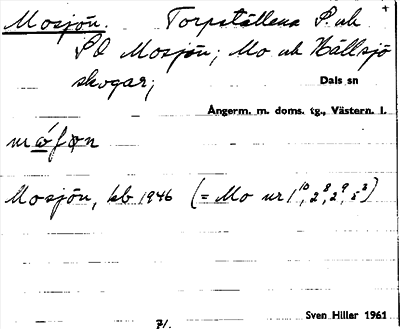 Mosjön. Torpställena P. uh +
P2 Mosjön; Mo uh Hällsjö
skogar;
Dals sn
Ångerm. m. doms. tg., Västern. l.
Mosjön, kb 1946 (= Mo nr 1¹⁰, 2⁸, 2⁹, 5³)
Sven Hiller 1961
7/.